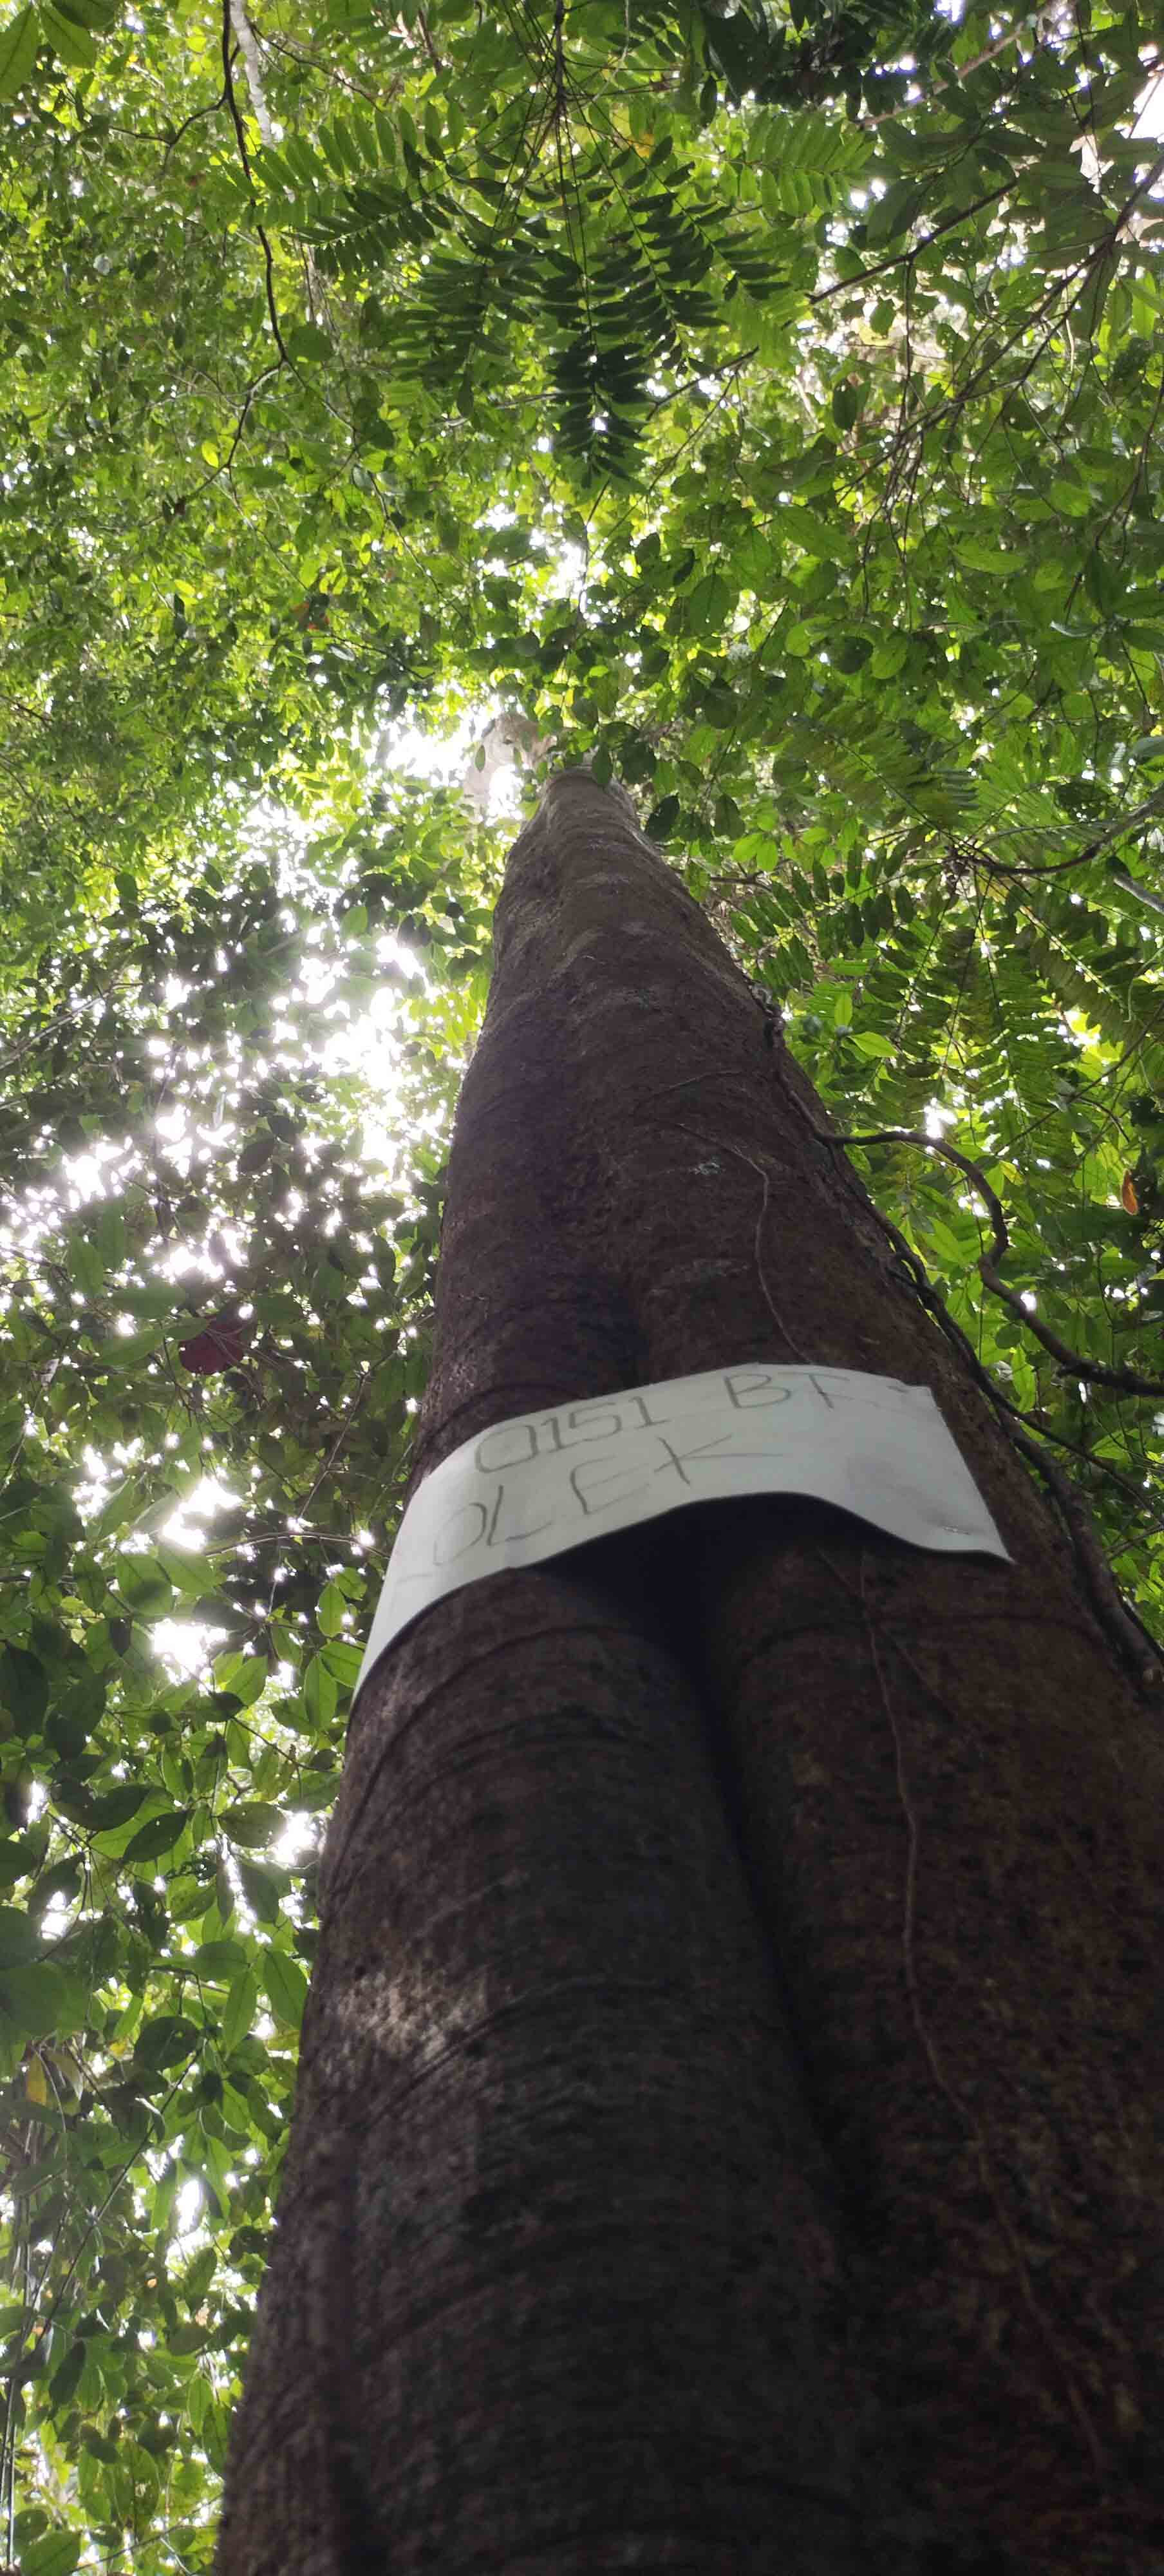 0151 BT
OLEK